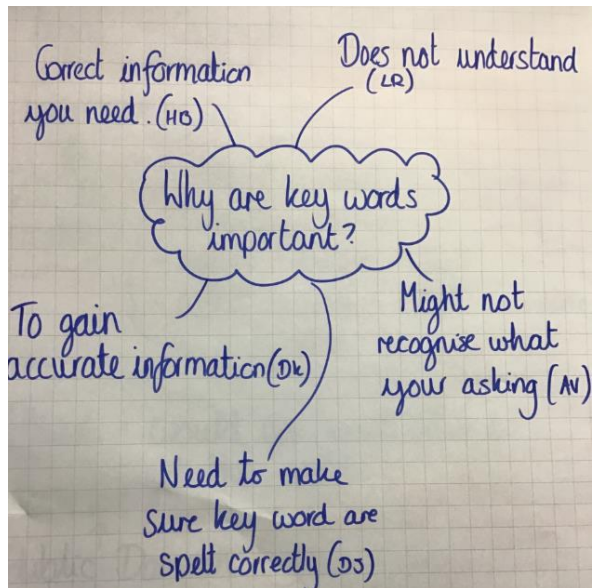 Correct information
you need. (HB)
Does not understand
(LR)
Why are key words
important?
To gain
accurate information (DK)
Might not
recognise what
your asking (AV)
Need to make
sure key word are
spelt correctly (DJ)